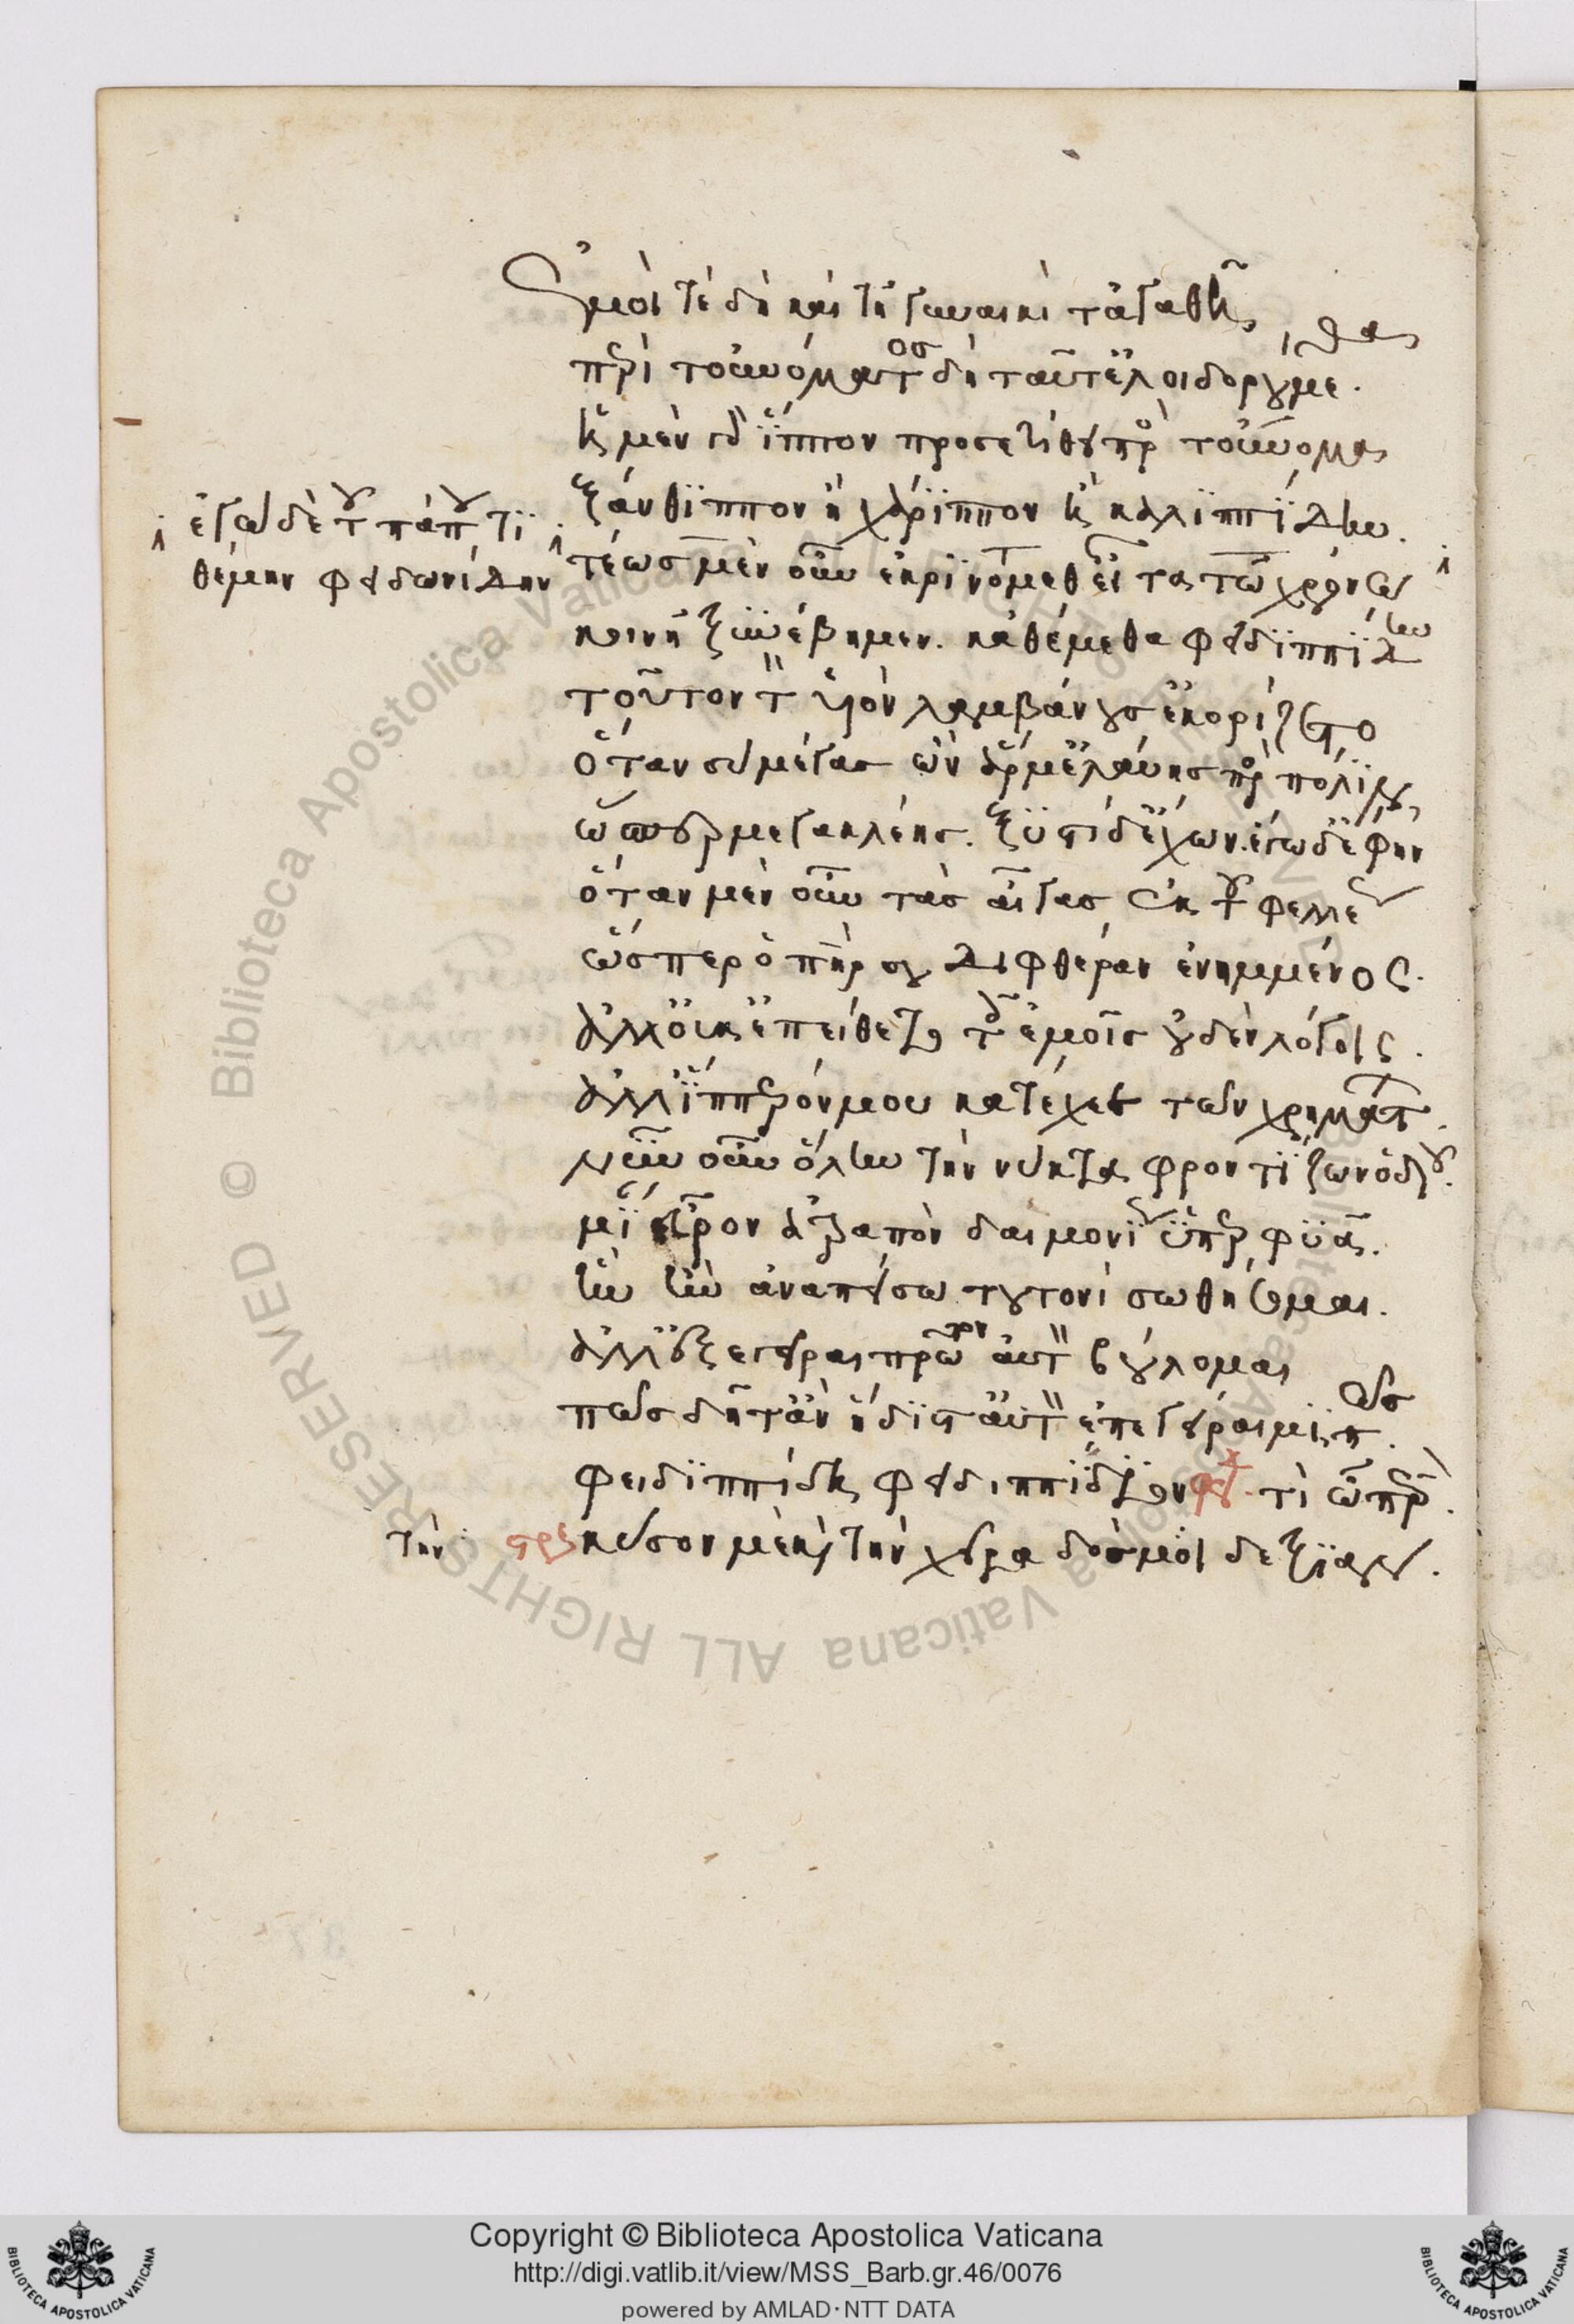 ἐμοί τε δὴ καὶ τῇ γυναικὶ τἀγαθῇ
περὶ τοὐνόματος δὴ ταῦτ' ἐλοιδορούμεθα
ἡ μὲν γὰρ ἵππον προσετίθει πρὸς τοὔνομα
ξάνθιππον ἢ χάριππον ἢ καλιππίδην.
ἐγὼ δὲ τοῦ πάππου τι
θέμην φειδωνίδην
τέως μὲν οὖν ἐκρινόμεθ' εἶτα τῷ χρόνῳ
κοινῇ ξυνέβημεν. κἀθέμεθα φειδιππίδην
τοῦτον τὸν υἱὸν λαμβάνουσ' ἐκορίζετο
ὅταν σὺ μέγας ὢν ἅρμ' ἐλαύνης πρὸς πόλιν
ὥσπερ μεγακλέης. ξυστίδ' ἔχων. ἐγὼ δ' ἔφην
ὅταν μὲν οὖν τὰς αἶγας ἐκ τοῦ φελλέως
ὥσπερ ὁ πατήρ σου διφθέραν ἐνημμένος.
ἀλλ' οὐκ ἐπείθετο τοῖς ἐμοῖς οὐδὲν λόγοις.
ἀλλ' ἵππερόν μου κατέχεεν τῶν χρημάτων.
νῦν οὖν ὅλην τὴν νύκτα φροντίζων ὁδοῦ.
μί' εὗρον ἀτραπὸν δαιμονίως ὑπερφυᾶ.
ἣν ἢν ἀναπείσω τουτονὶ σωθήσομαι.
ἀλλ' ἐξεγεῖραι πρῶτον αὐτὸν βούλομαι
πῶς δῆτ' ἂν ἥδιστ' αὐτὸν ἐπεγείραιμι; πῶς.
φειδιππίδη φειδιππίδιον φει. τί ὦ πάτερ.
στρε κύσον με καὶ τὴν χεῖρα δός μοι δεξιάν.
τὴν
Copyright © Biblioteca Apostolica Vaticana
http://digi.vatlib.it/view/MSS_Barb.gr.46/0076
powered by AMLAD·NTT DATA
BIBLIOTECA APOSTOLICA VATICANA
BIBLIOTECA APOSTOLICA VATICANA
Biblioteca Apostolica Vaticana ALL RIGHTS RESERVED ©